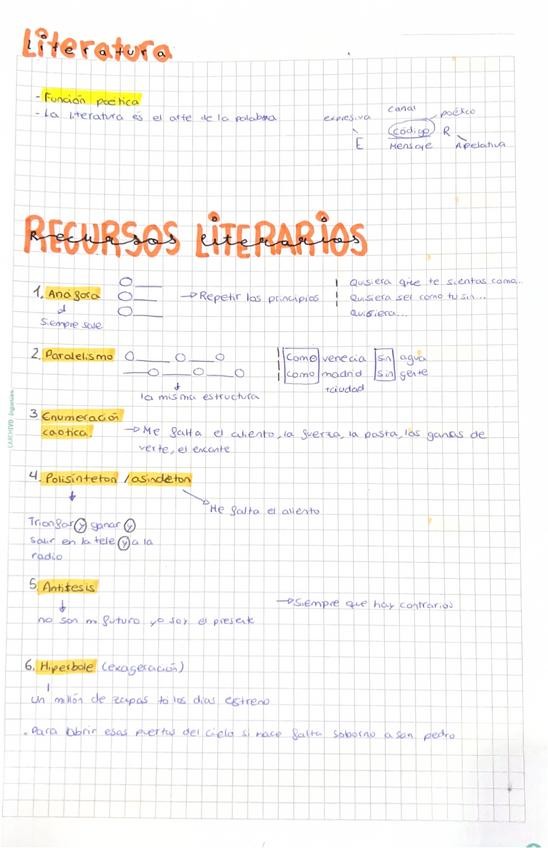 Literatura
- Función poetica
- La Literatura es el arte de la palabra
expresiva
canal
poético
código
R
E
Mensaje
Apelativa
RECURSOS LITERARIOS
Recursos Literarios
1. Anafora
→ Repetir los principios
Quisiera que te sientas como...
Quisiera ser como tu sin...
Quisiera...
Siempre sale
2. Paralelismo
la misma estructura
como venecia sin agua
como madrid sin gente
+ciudad
3 Enumeración
caotica.
→ Me falta el aliento, la fuerza, la pasta, las ganas de
verte, el
4. Polisinteton / asindeton
Me falta el aliento
Triunfar y ganar y
salir en la tele y a la
radio
5 Antitesis
→ Siempre que hay contrarios
no son mi futuro yo soy el presente
6. Hiperbole (exageración)
un millón de zapas to los dias estreno
. Para abrir esas puertas del cielo si hace falta soborno a san pedro